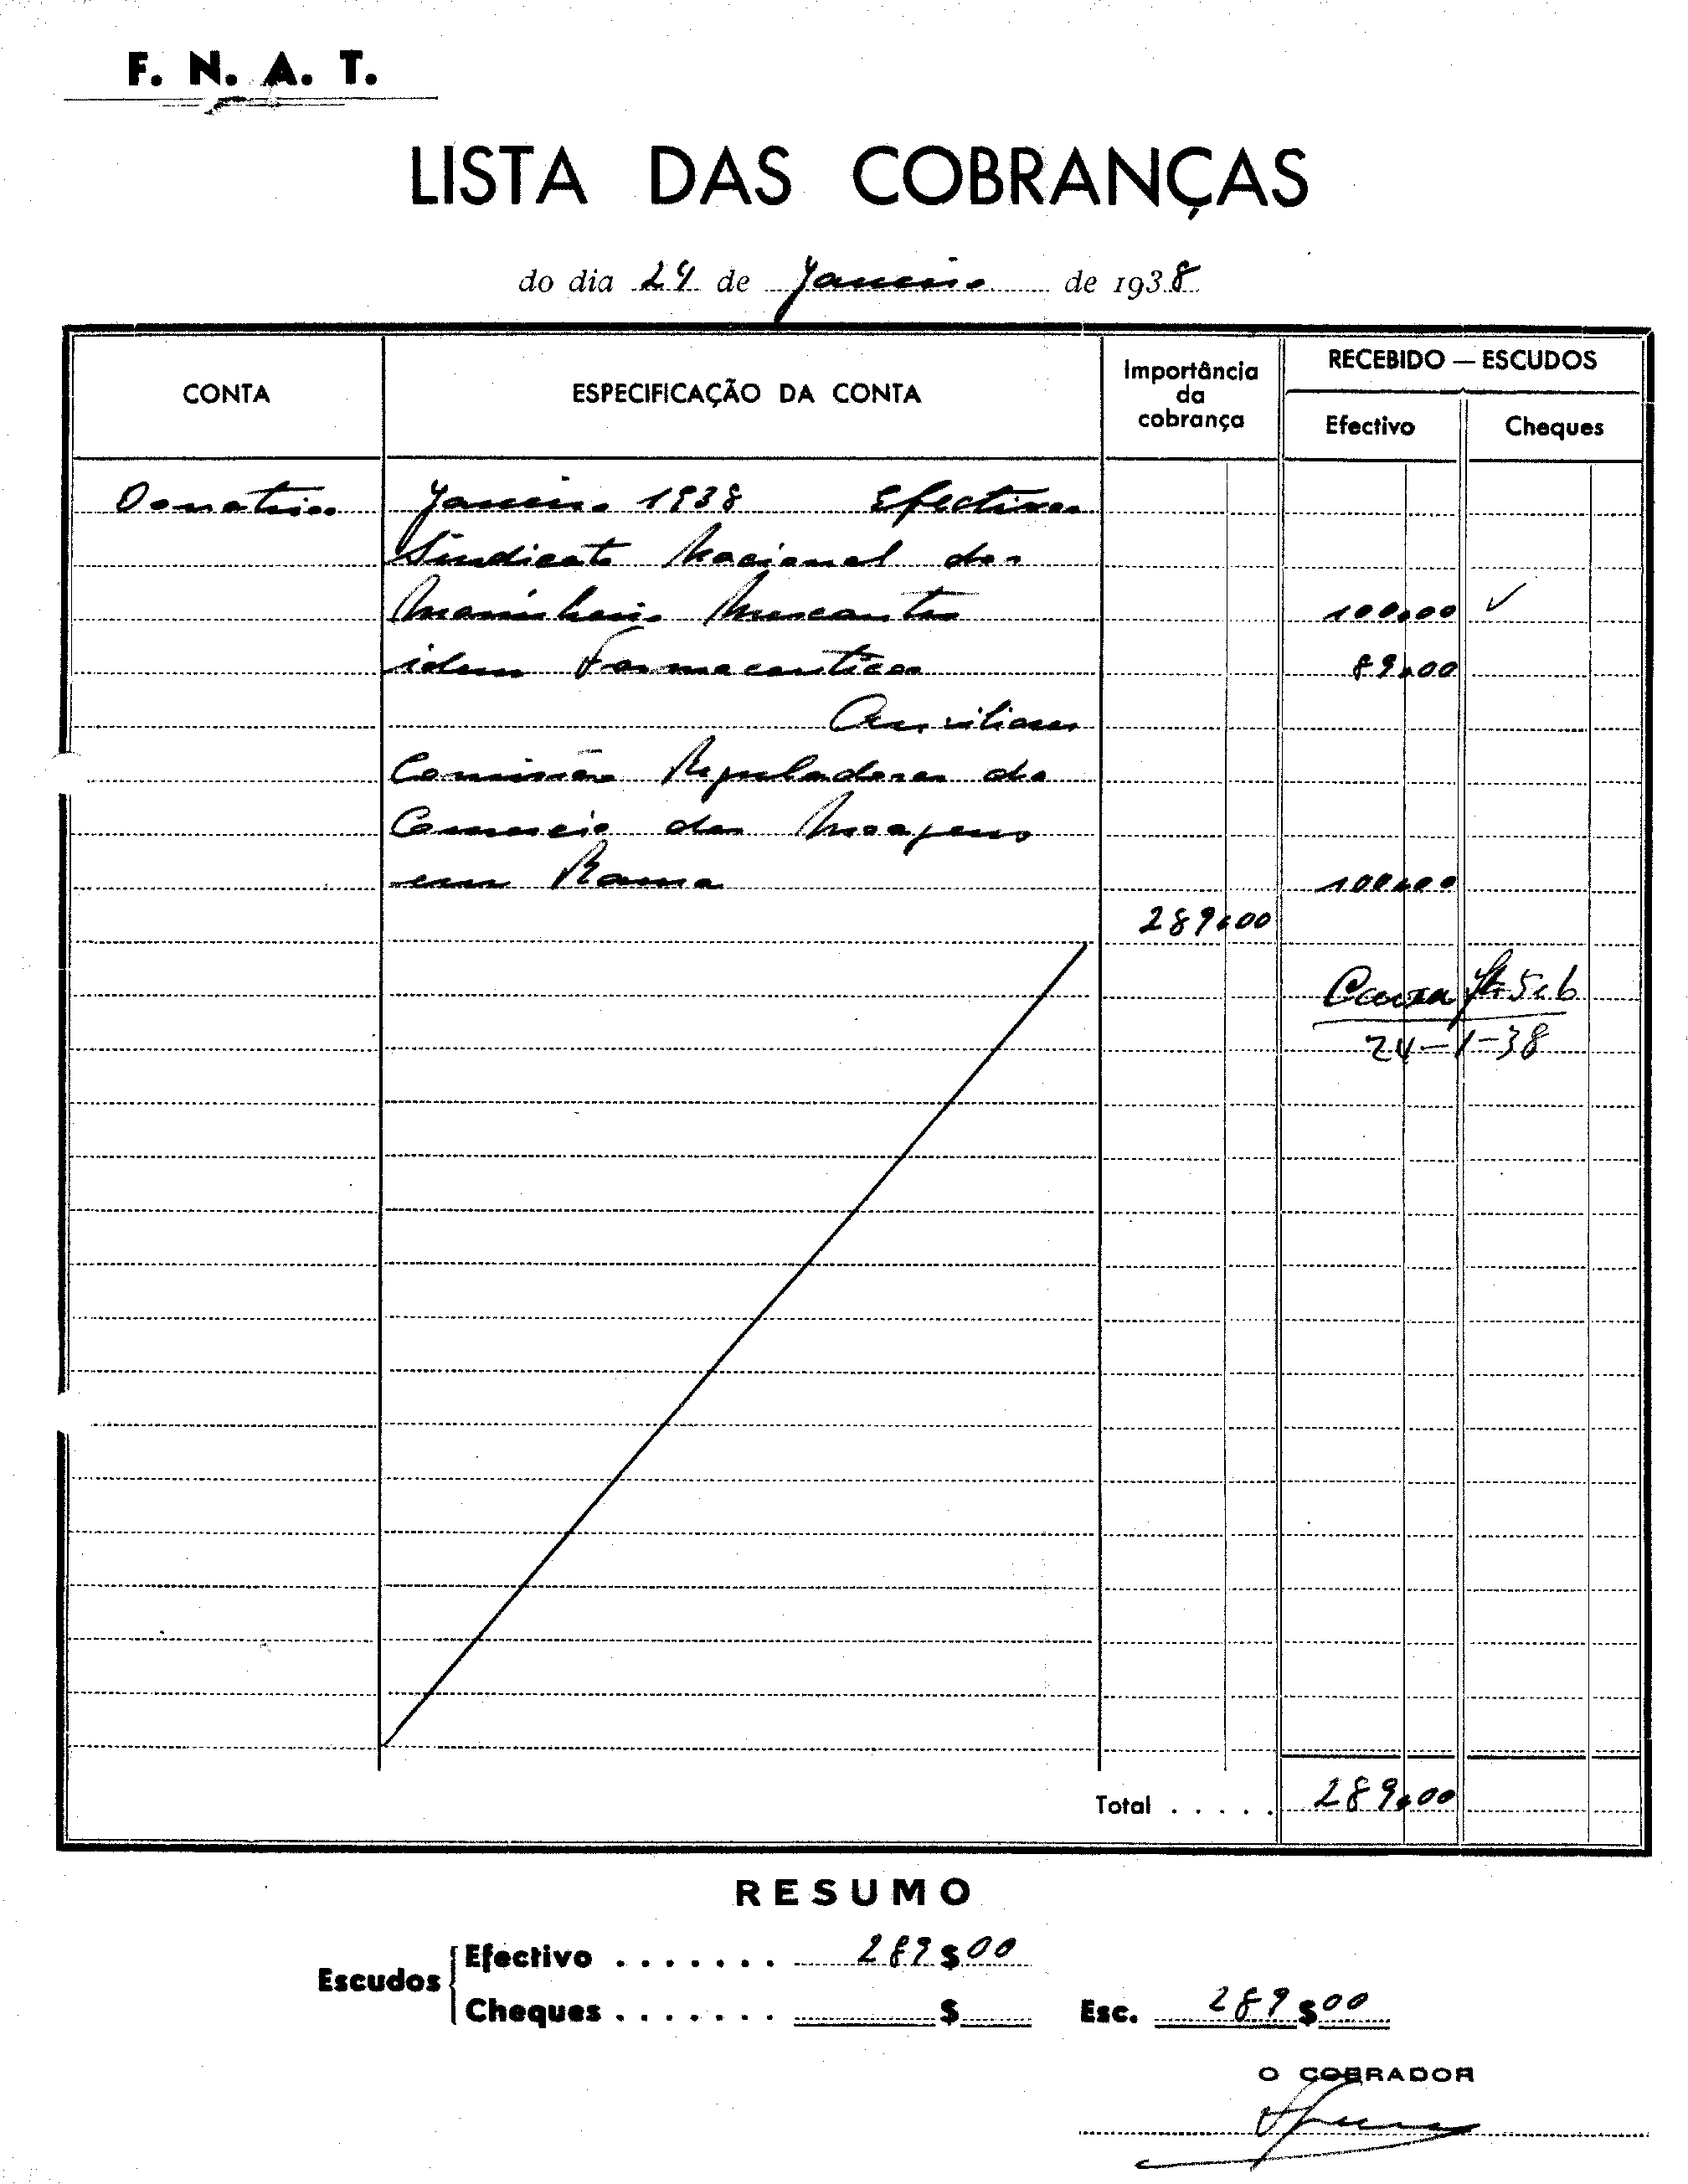 F. N. A. T.
LISTA DAS COBRANÇAS
do dia 24 de Janeiro de 1938
CONTA
ESPECIFICAÇÃO DA CONTA
Importância
da
cobrança
RECEBIDO — ESCUDOS
Efectivo
Cheques
Donativos Janeiro 1938 Efectivos
Sindicato Nacional dos
Marinheiros Mercantes 100,00 ✓
idem Farmaceuticos 89,00
Auxiliares
Comissão Reguladora do
Comercio das Moagens
em Rama 100,00
289,00
Caixa 5 6
24-1-38
Total . . . . . 289,00
RESUMO
Escudos
Efectivo . . . . . . . 289$00
Cheques . . . . . . . $
Esc. 289$00
O COBRADOR